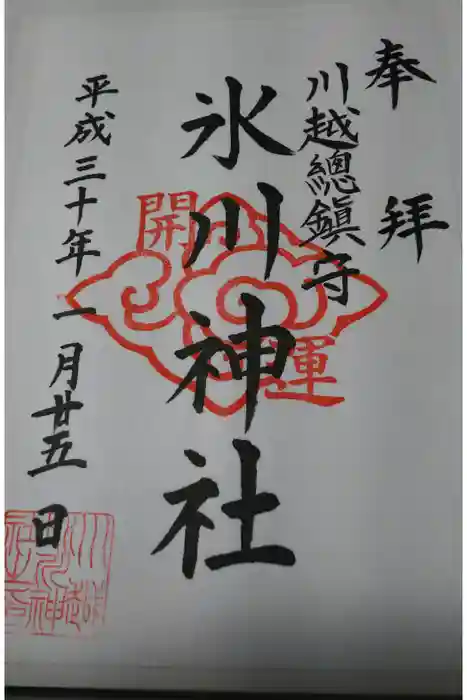 奉拝
川越總鎮守
氷川神社
開運
平成三十年一月廿五日